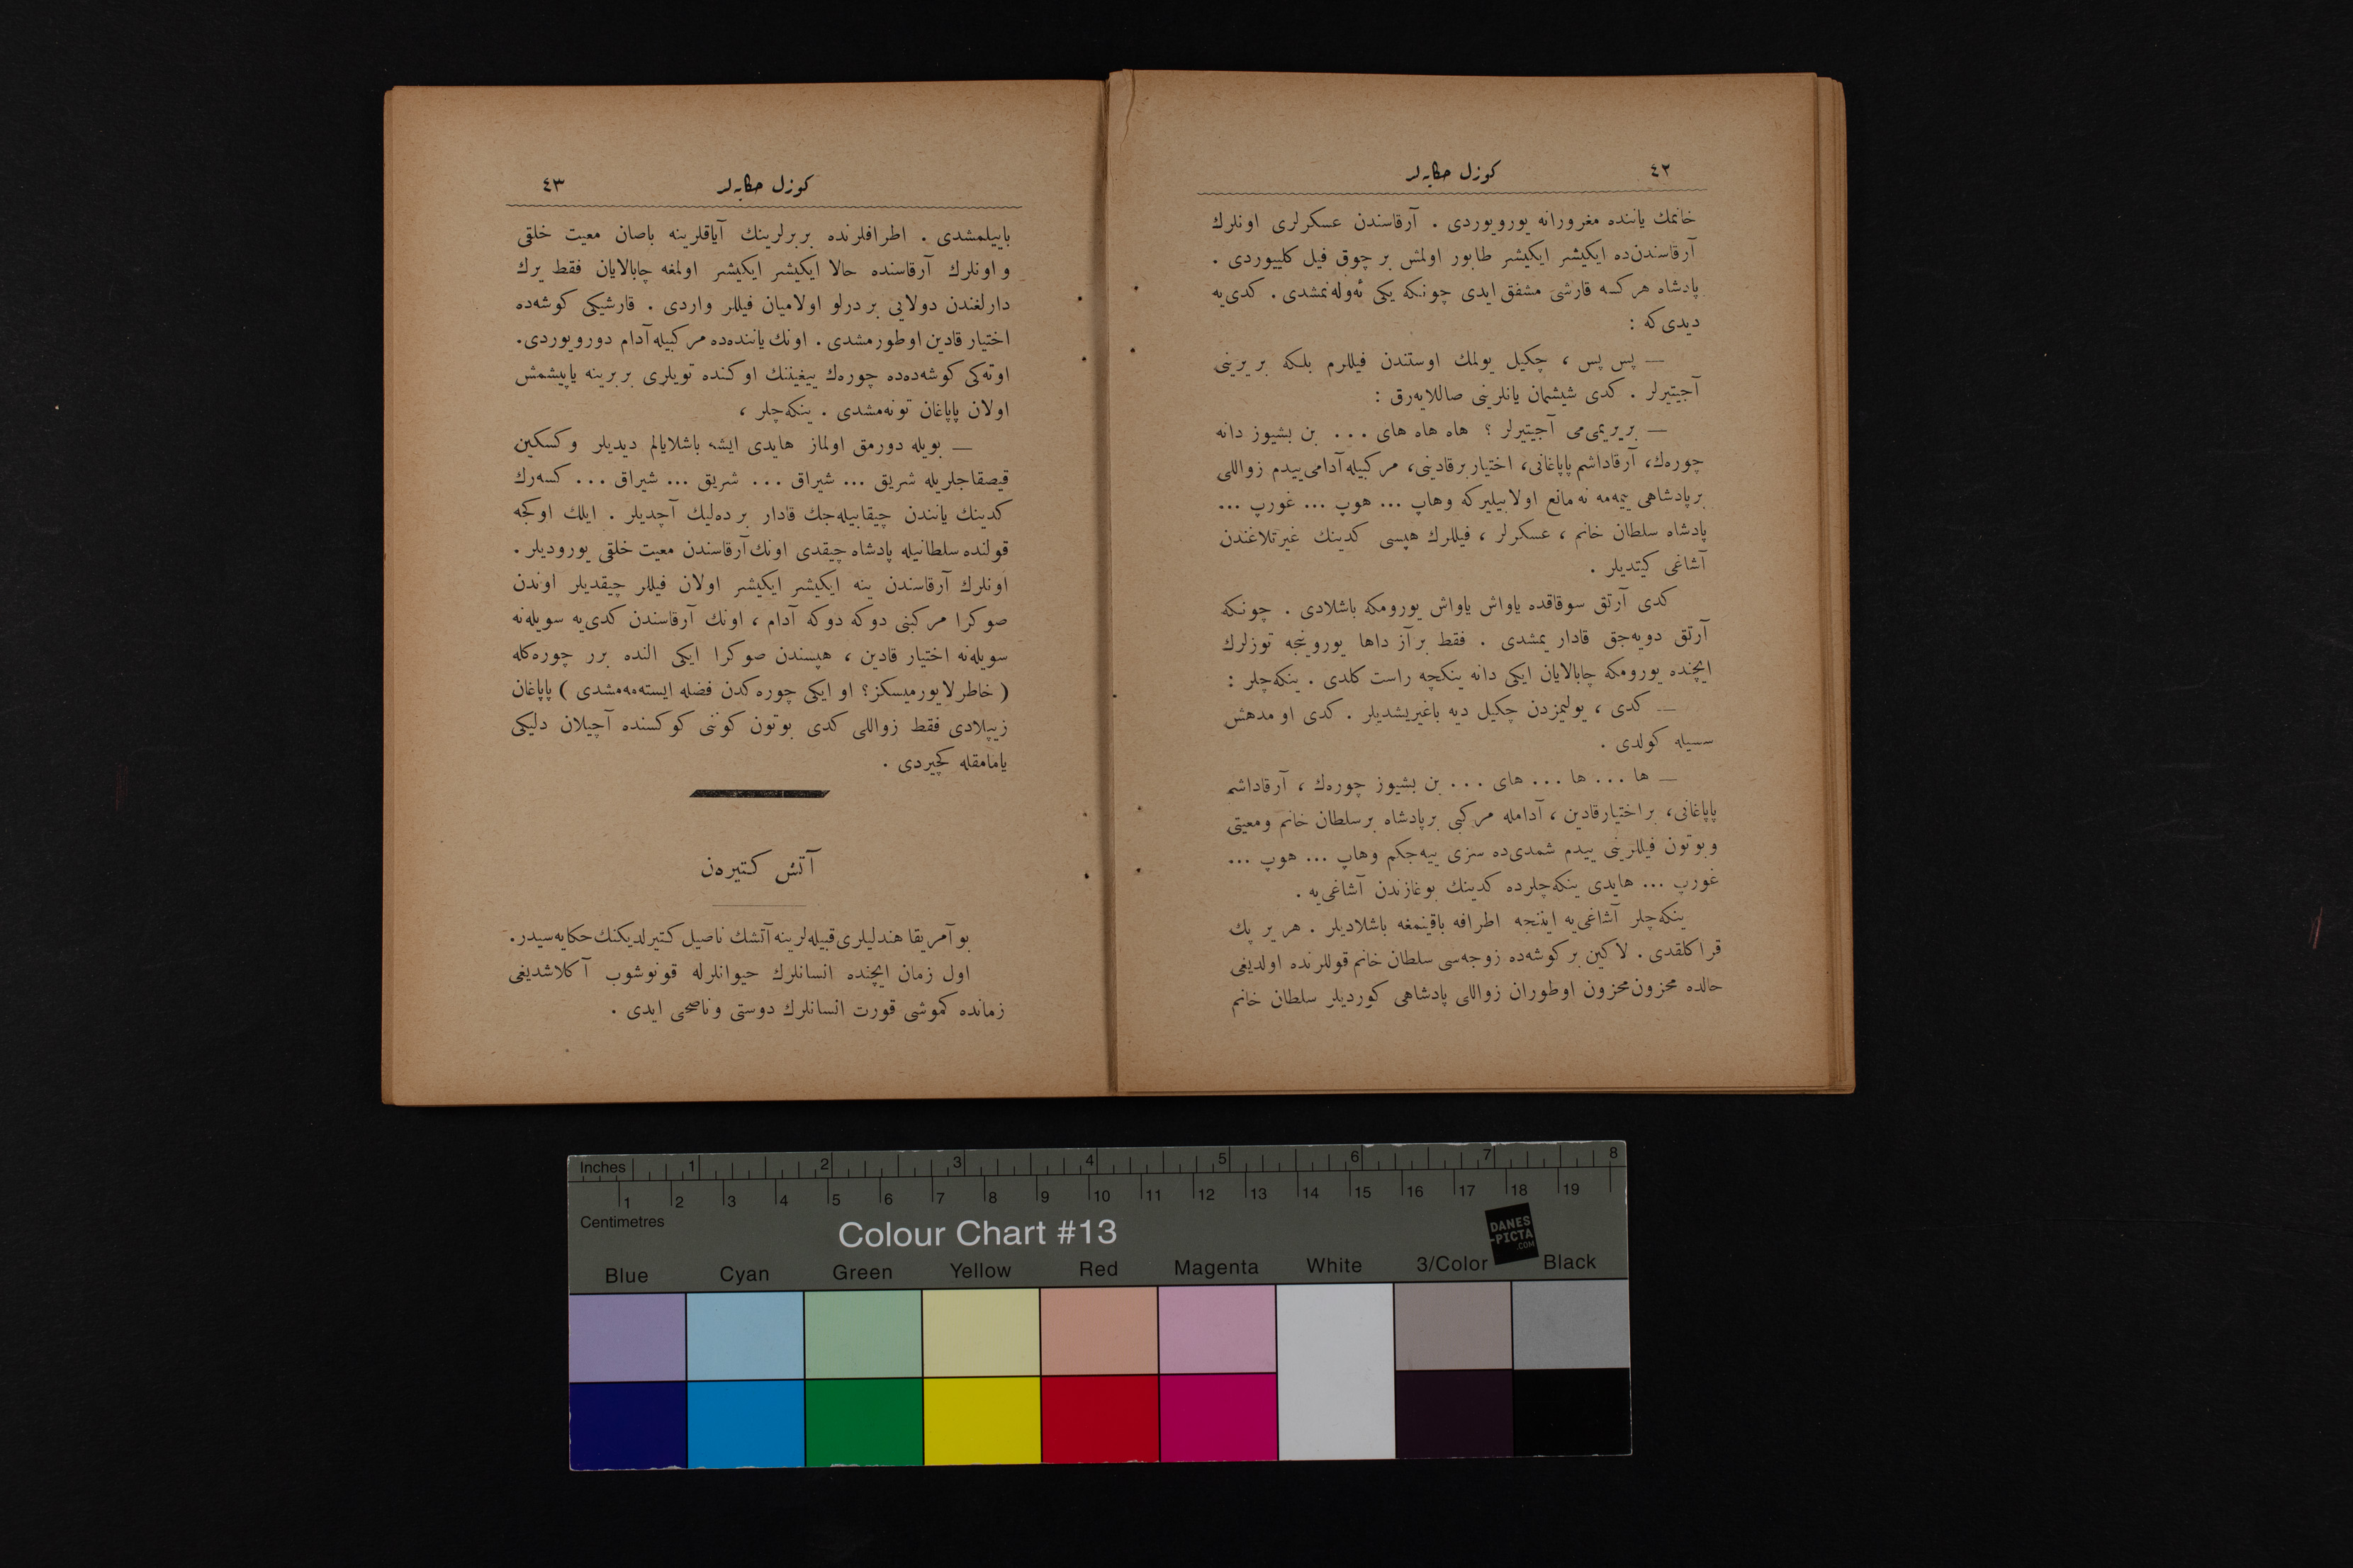 ٤٢
كوزل حكايه‌لر
خانمك ياننده مغرورانه يورويوردى . آرقاسندن عسكرلرى اونلرك
آرقاسندن‌ده ايكيشر ايكيشر طابور اولمش بر چوق فيل كلييوردى .
پادشاه هركسه قارشى مشفق ايدى چونكه يكى ئه‌وله‌نمشدى . كدى‌يه
ديدى‌كه :
— پس پس ، چكيل يولمك اوستندن فيللرم بلكه بر يرينى
آجيتيرلر . كدى شيشمان يانلرينى صاللايه‌رق :
— بر يريمى‌مى آجيتيرلر ؟ هاه هاه هاى ... بن بشيوز دانه
چوره‌ك، آرقاداشم پاپاغانى، اختيار برقادينى، مركبيله آدامى‌ييدم زواللى
بر پادشاهى ييمه‌مه نه مانع اولابيليركه وهاپ ... هوپ ... غورپ ...
پادشاه سلطان خانم ، عسكرلر ، فيللرك هپسى كدينك غيرتلاغندن
آشاغى كيتديلر .
كدى آرتق سوقاقده ياواش ياواش يورومكه باشلادى . چونكه
آرتق دويه‌جق قادار يمشدى . فقط بر آز داها يورويننجه توزلرك
ايچنده يورومكه چابالايان ايكى دانه ينكچه راست كلدى . ينكه‌چلر :
— كدى ، يوليمزدن چكيل ديه باغيريشديلر . كدى او مدهش
سسيله كولدى .
— ها ... ها ... هاى ... بن بشيوز چوره‌ك ، آرقاداشم
پاپاغانى، بر اختيارقادين ، آدامله مركبى بر پادشاه بر سلطان خانم ومعيتى
وبوتون فيللرينى ييدم شمدى‌ده سزى ييه‌جكم وهاپ ... هوپ ...
غورپ ... هايدى ينكه‌چلرده كدينك بوغازندن آشاغى‌يه .
ينكه‌چلر آشاغى‌يه ايننجه اطرافه باقينمغه باشلاديلر . هر ير پك
قراكلقدى . لاكين بر كوشه‌ده زوجه‌سى سلطان خانم قوللرنده اولديغى
حالده محزون‌محزون اوطوران زواللى پادشاهى كورديلر سلطان خانم
٤٣
كوزل حكايه‌لر
باييلمشدى . اطرافلرنده بربرلرينك آياقلرينه باصان معيت خلقى
و اونلرك آرقاسنده حالا ايكيشر ايكيشر اولمغه چابالايان فقط يرك
دارلغندن دولايى بر درلو اولاميان فيللر واردى . قارشيكى كوشه‌ده
اختيار قادين اوطورمشدى . اونك ياننده‌ده مركبيله آدام دورويوردى.
اوته‌كى كوشه‌ده‌ده چوره‌ك ييغيننك اوكنده تويلرى بربرينه ياپيشمش
اولان پاپاغان تونه‌مشدى . ينكه‌چلر ،
— بويله دورمق اولماز هايدى ايشه باشلايالم ديديلر وكسكين
قيصقاجلريله شريق ... شيراق ... شريق ... شيراق ... كسه‌رك
كدينك يانندن چيقابيله‌جك قادار بر ده‌ليك آچديلر . ايلك اوكجه
قولنده سلطانيله پادشاه چيقدى اونك آرقاسندن معيت خلقى يوروديلر .
اونلرك آرقاسندن ينه ايكيشر ايكيشر اولان فيللر چيقديلر اوندن
صوكرا مركبنى دوكه دوكه آدام ، اونك آرقاسندن كدى‌يه سويله‌نه
سويله‌نه اختيار قادين ، هپسندن صوكرا ايكى النده برر چوره‌كله
( خاطرلايورميسكز؟ او ايكى چوره‌كدن فضله ايسته‌مه‌مشدى ) پاپاغان
زيپلادى فقط زواللى كدى بوتون كوننى كوكسنده آچيلان دليكى
يامامقله كچيردى .
آتش كتيره‌ن
بو آمريقا هندليلرى قبيله‌لرينه آتشك ناصيل كتيرلديكنك حكايه‌سيدر.
اول زمان ايچنده انسانلرك حيوانلرله قونوشوب آكلاشديغى
زمانده كموشى قورت انسانلرك دوستى وناصحى ايدى .
Inches 1 2 3 4 5 6 7 8
1 2 3 4 5 6 7 8 9 10 11 12 13 14 15 16 17 18 19
Centimetres
Colour Chart #13
DANES
-PICTA
.COM
Blue Cyan Green Yellow Red Magenta White 3/Color Black